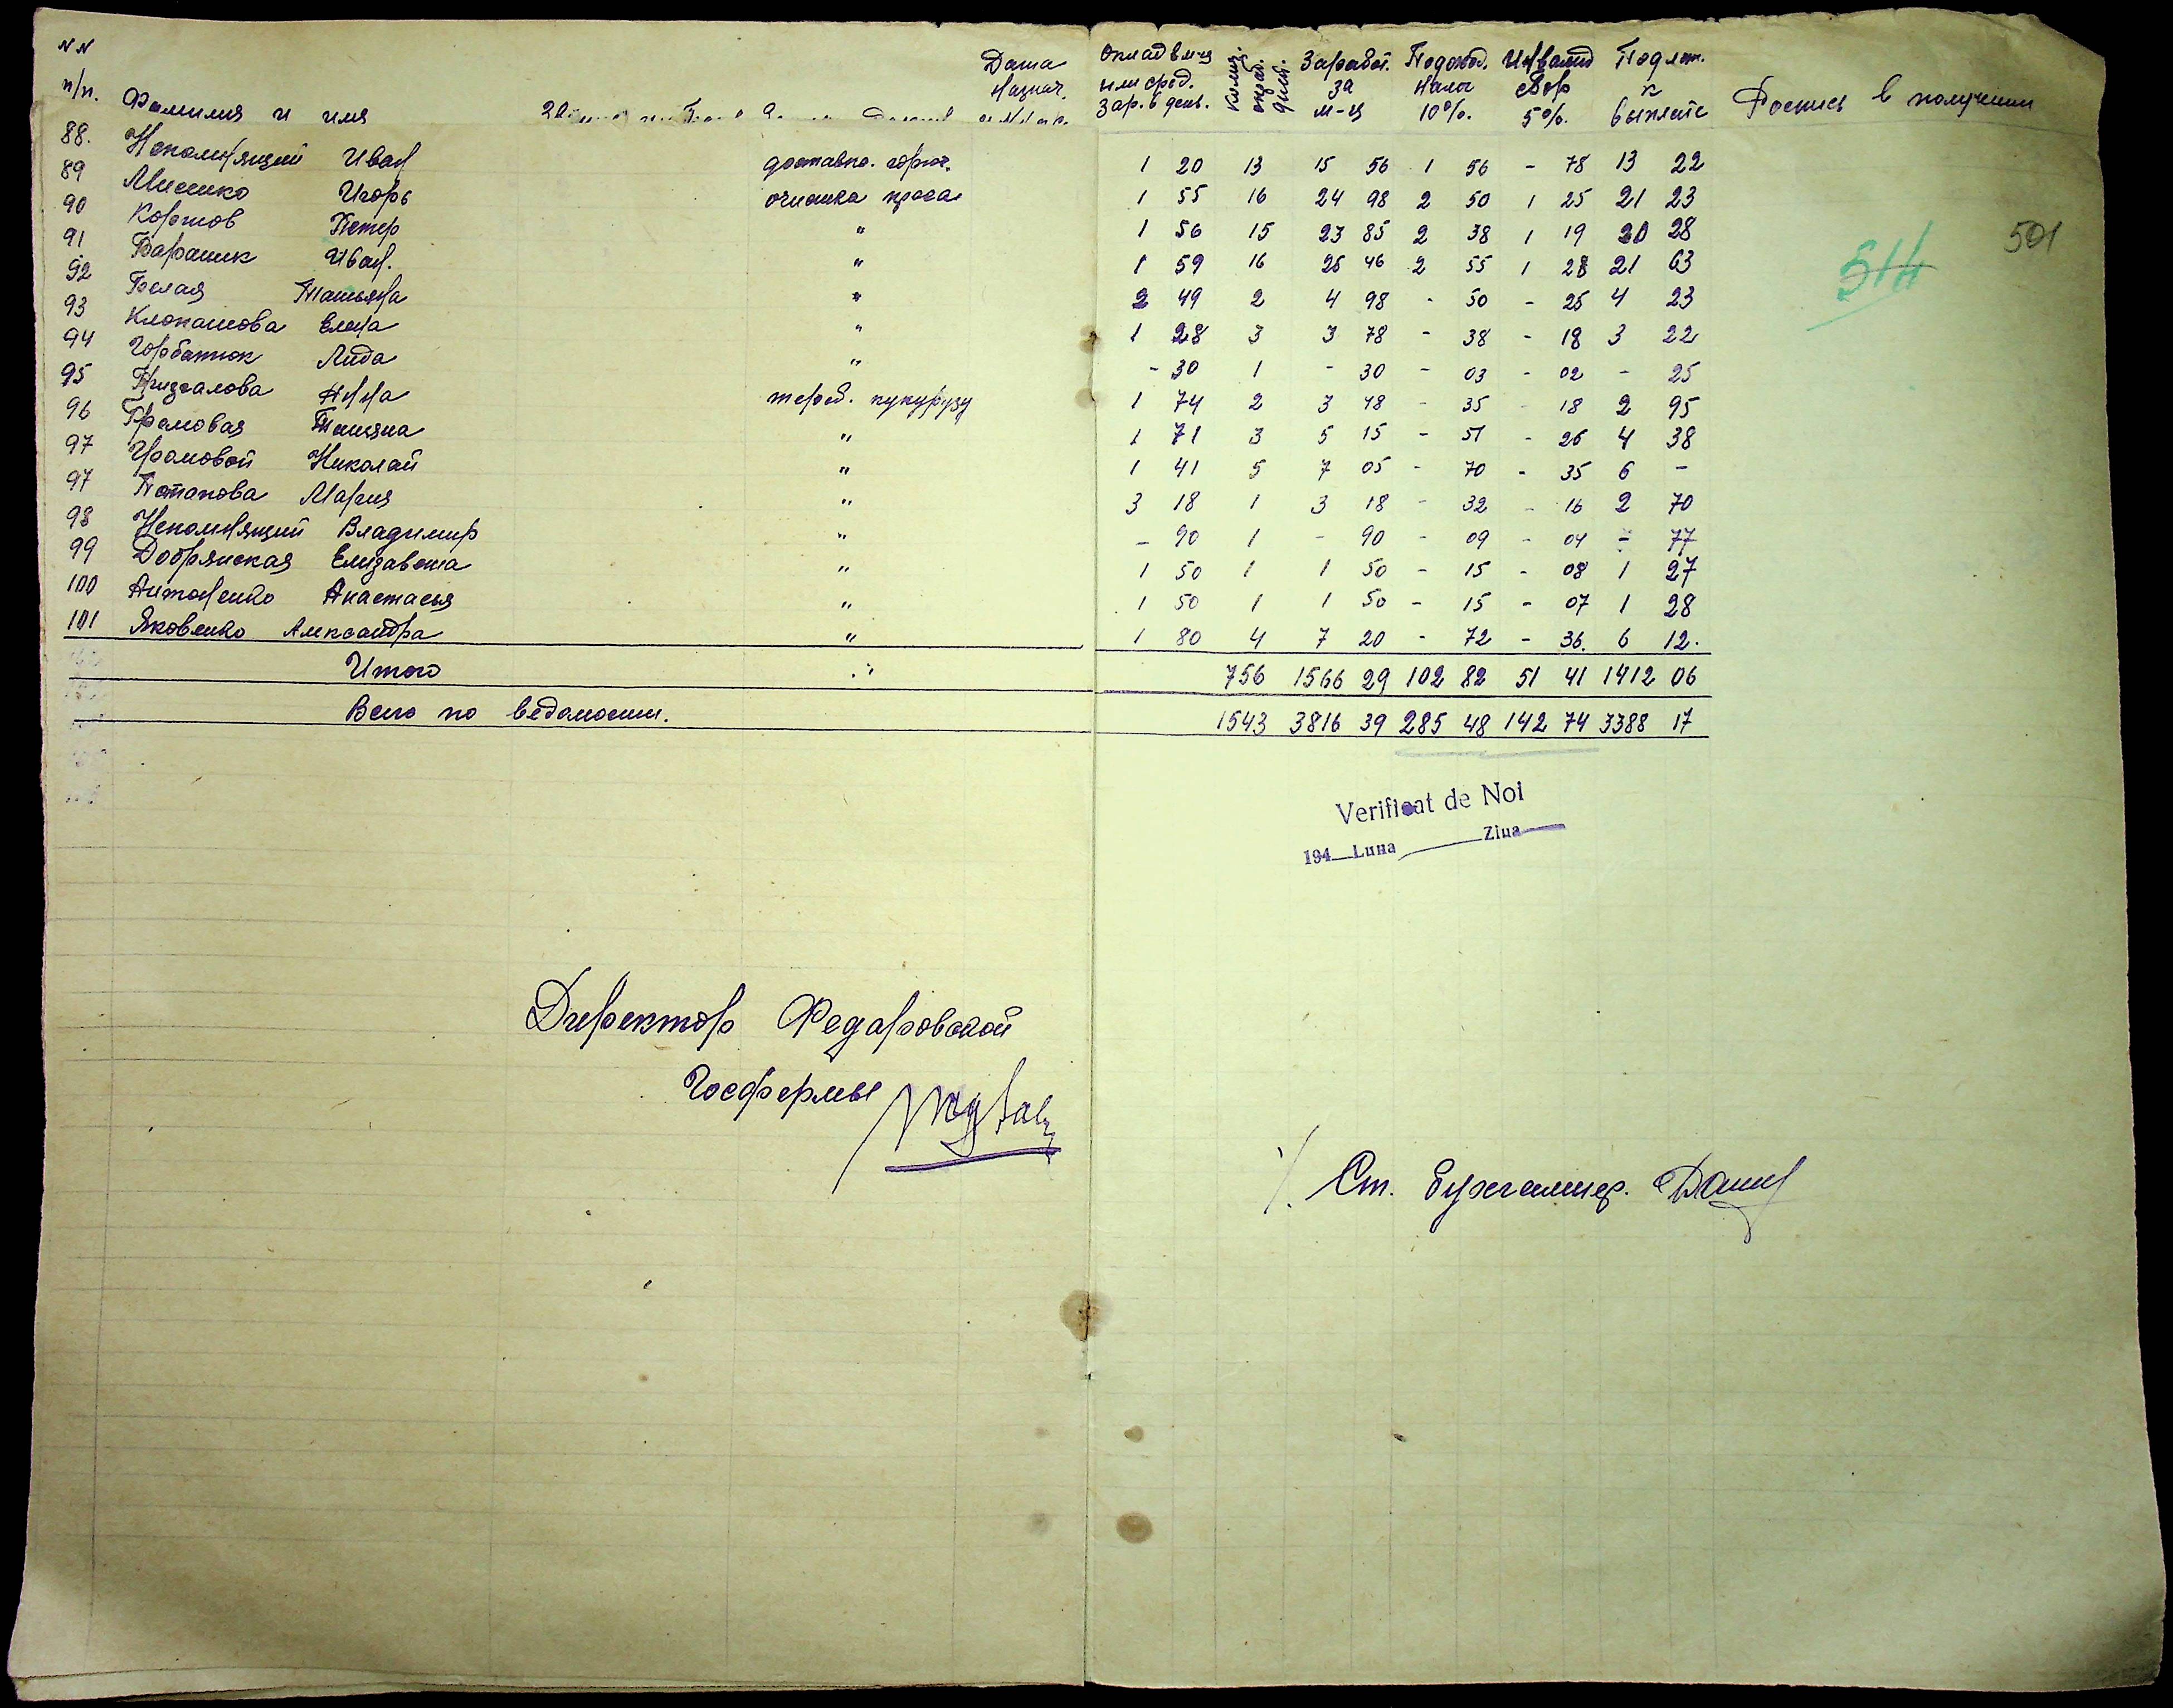 NN п/п. Фамилия и имя Дата назнач. Оклад в м-ц или сред. Зар. в день. Заработ. за м-ц Подоход. налог 10%. Инвалид сбор 5%. Подлеж. к выплате Роспись в получении
501
514
88. Непомнящий Иван доставка. горюч. 1 20 13 15 56 1 56 - 78 13 22
89 Мисико Игорь очистка проса 1 55 16 24 98 2 50 1 25 21 23
90 Коржов Петер " 1 56 15 23 85 2 38 1 19 20 28
91 Бараник Иван. " 1 59 16 25 46 2 55 1 28 21 63
92 Белая Татьяна " 2 49 2 4 98 - 50 - 25 4 23
93 Клопатова Елена " 1 28 3 3 78 - 38 - 18 3 22
94 Горбатюк Лида " - 30 1 - 30 - 03 - 02 - 25
95 Нина тереб. кукурузу 1 74 2 3 48 - 35 - 18 2 95
96 Громовая Татяна " 1 71 3 5 15 - 51 - 26 4 38
97 Громовой Николай " 1 41 5 7 05 - 70 - 35 6 -
97 Потапова Мария " 3 18 1 3 18 - 32 - 16 2 70
98 Непомнящий Владимир " - 90 1 - 90 - 09 - 04 - 77
99 Добрянская Елизавета " 1 50 1 1 50 - 15 - 08 1 27
100 Антоненко Анастасья " 1 50 1 1 50 - 15 - 07 1 28
101 Яковенко Александра " 1 80 4 7 20 - 72 - 36. 6 12.
Итого 756 1566 29 102 82 51 41 1412 06
Всего по ведомости. 1543 3816 39 285 48 142 74 3388 17
Verificat de Noi
194 Luna Ziua
Директор Федаровской
Госфермы
Ст. Бухгалтер.